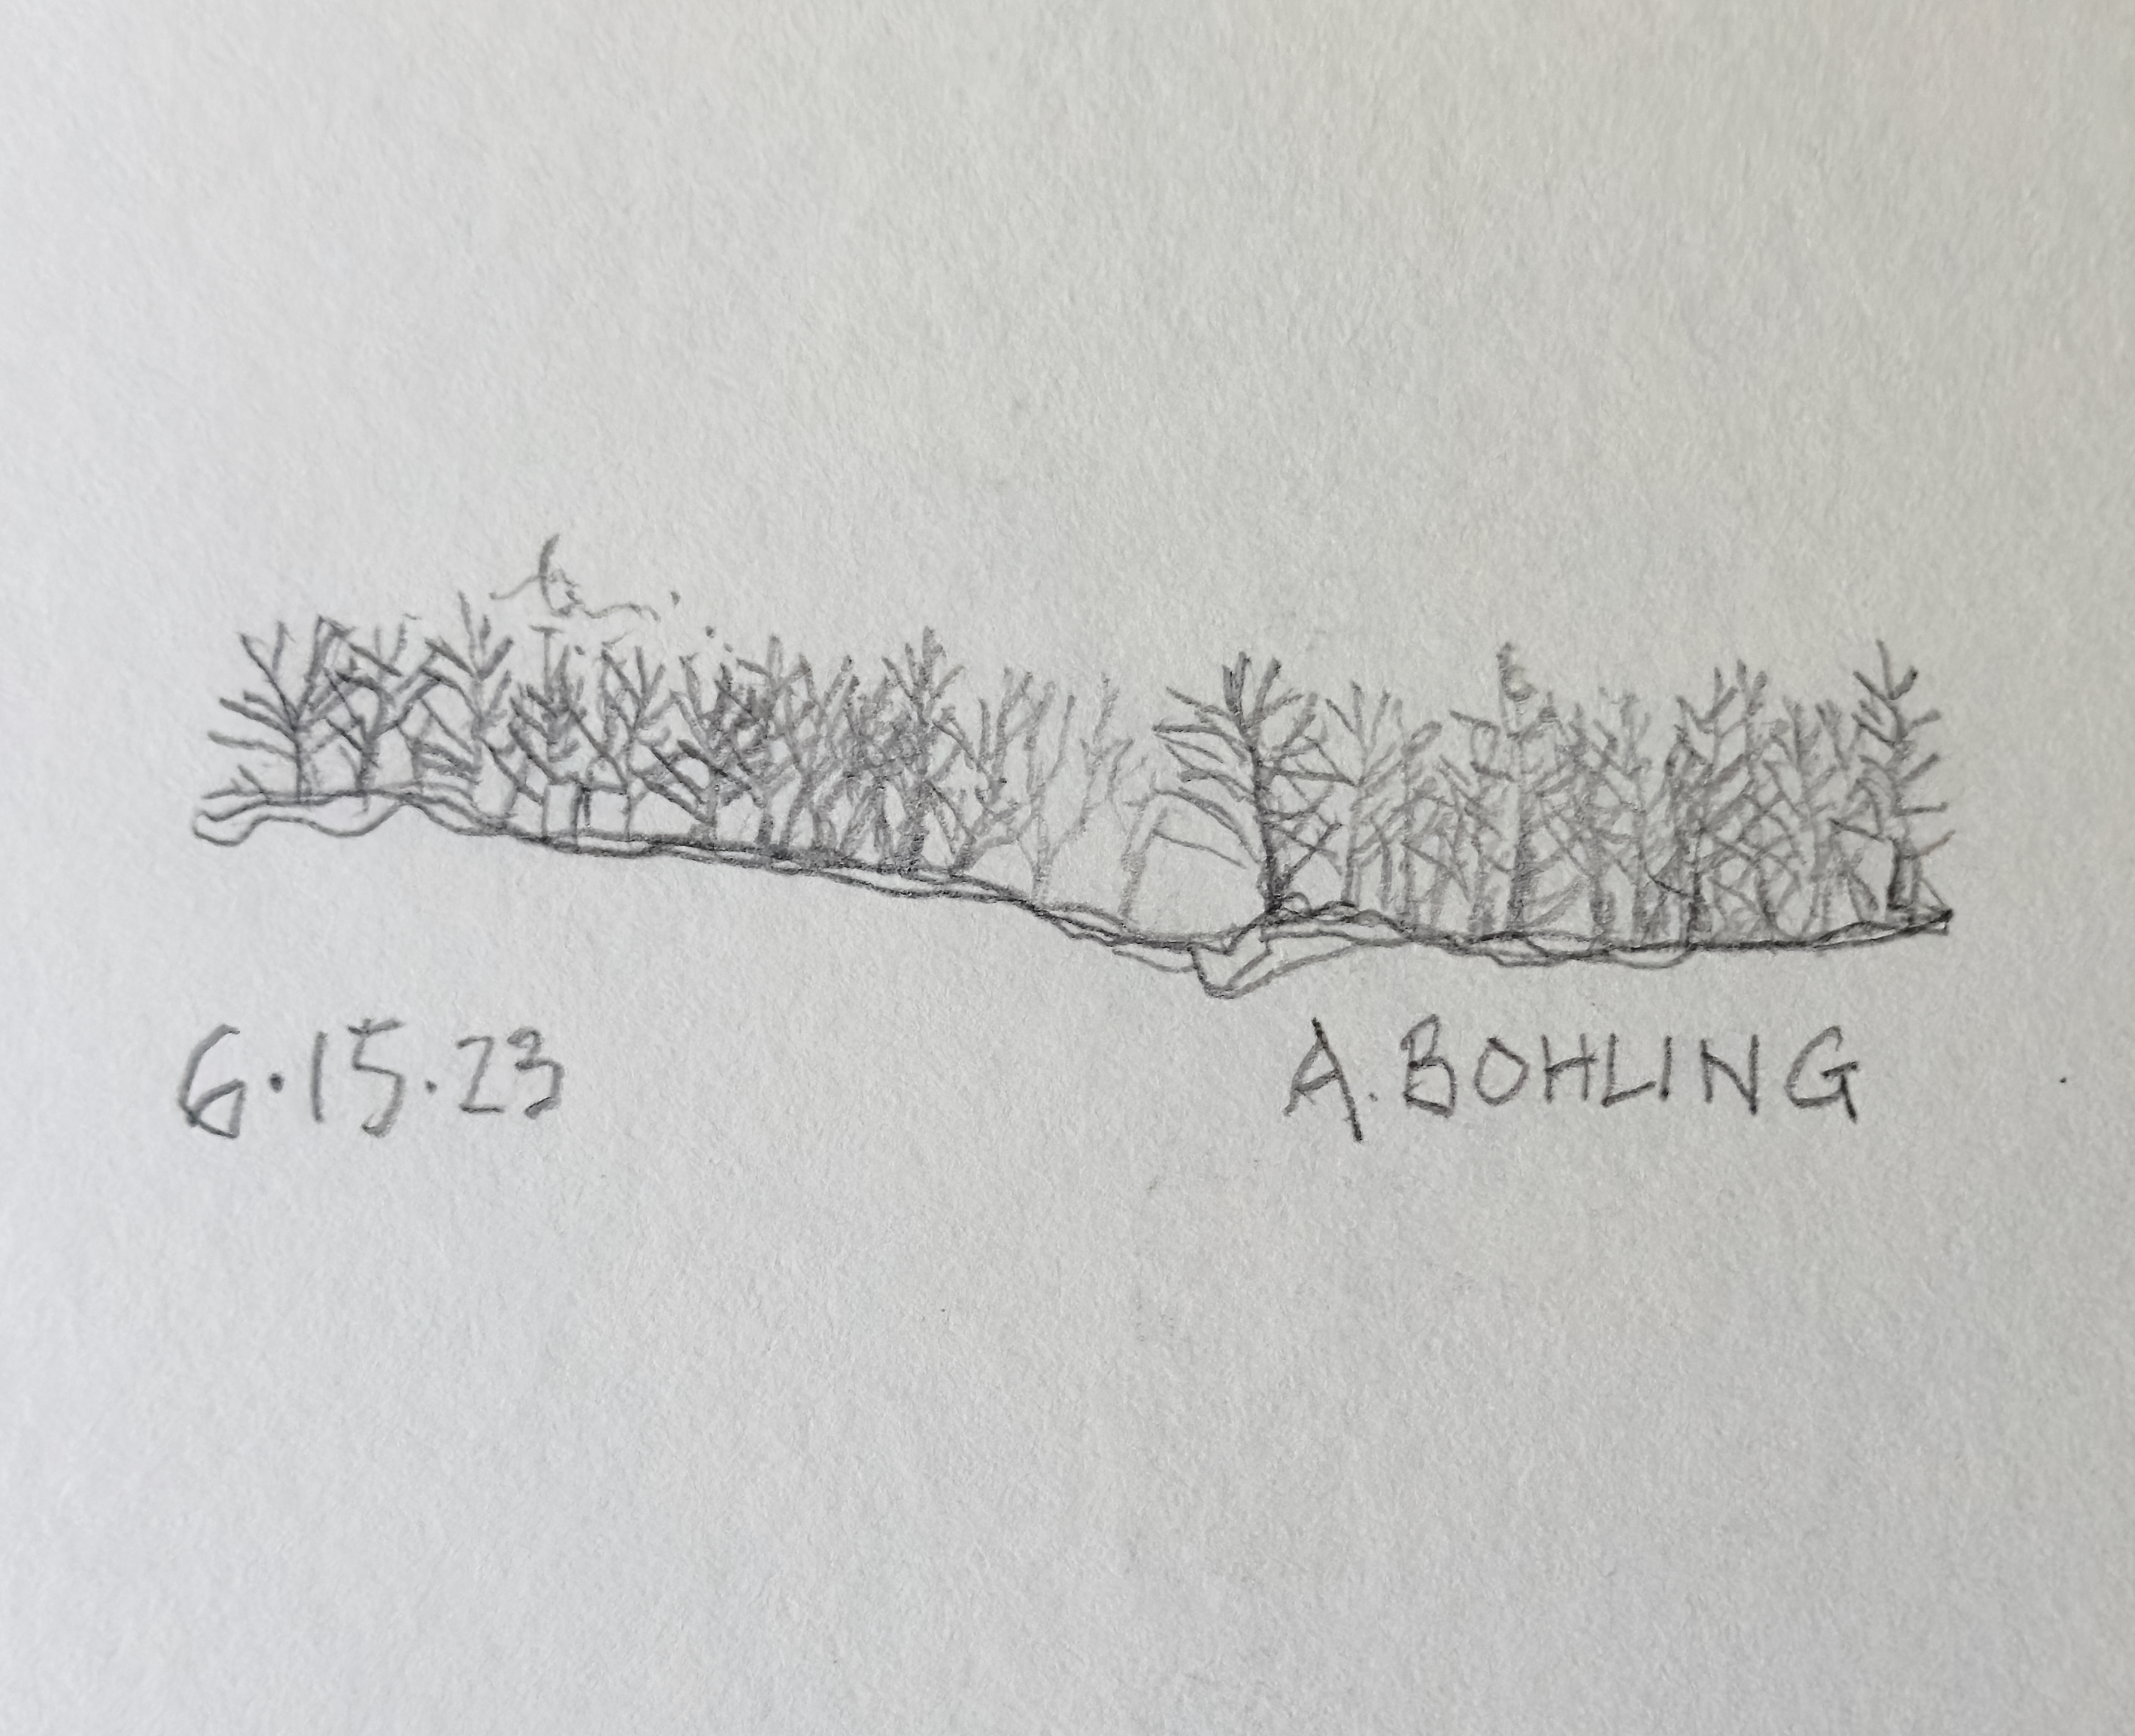 6.15.23
A. BOHLING